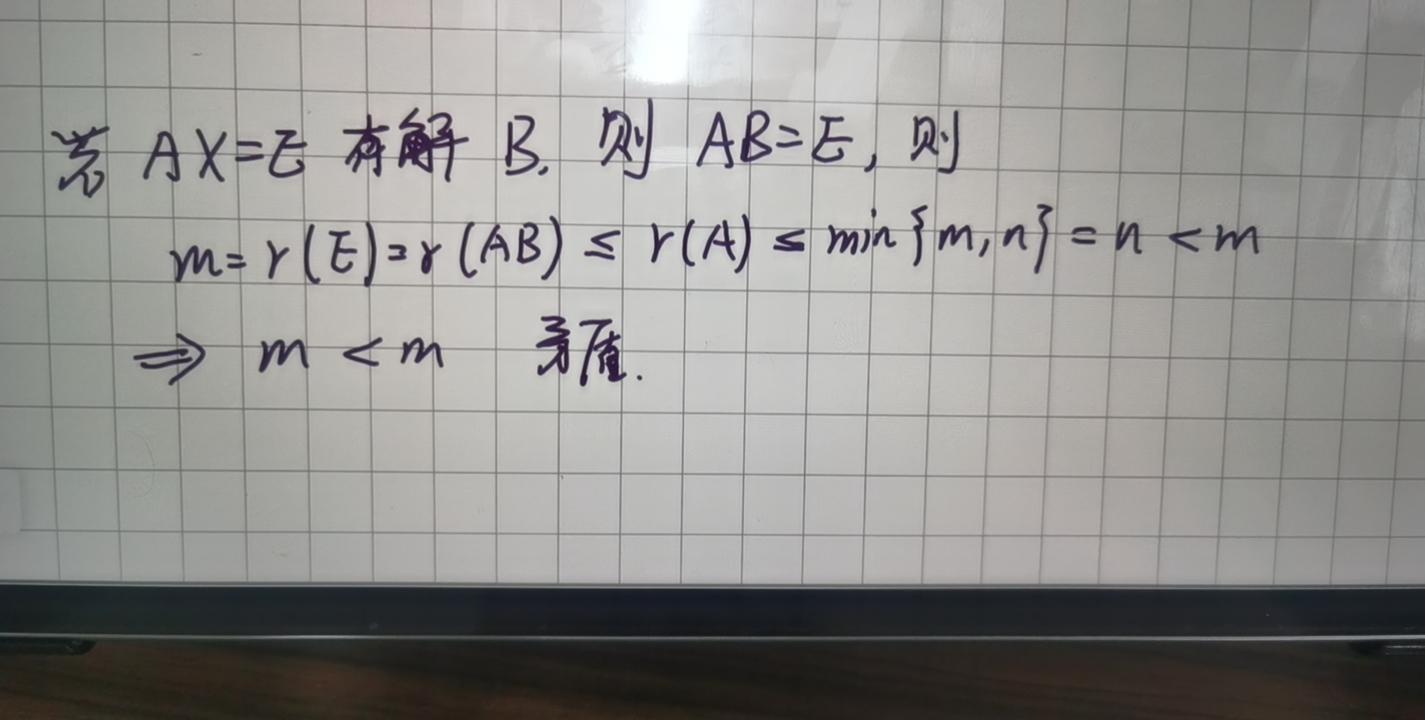 若 AX=E 有解 B, 则 AB=E, 则
m=r(E)=r(AB) ≤ r(A) ≤ min{m,n} = n < m
⇒ m < m 矛盾.